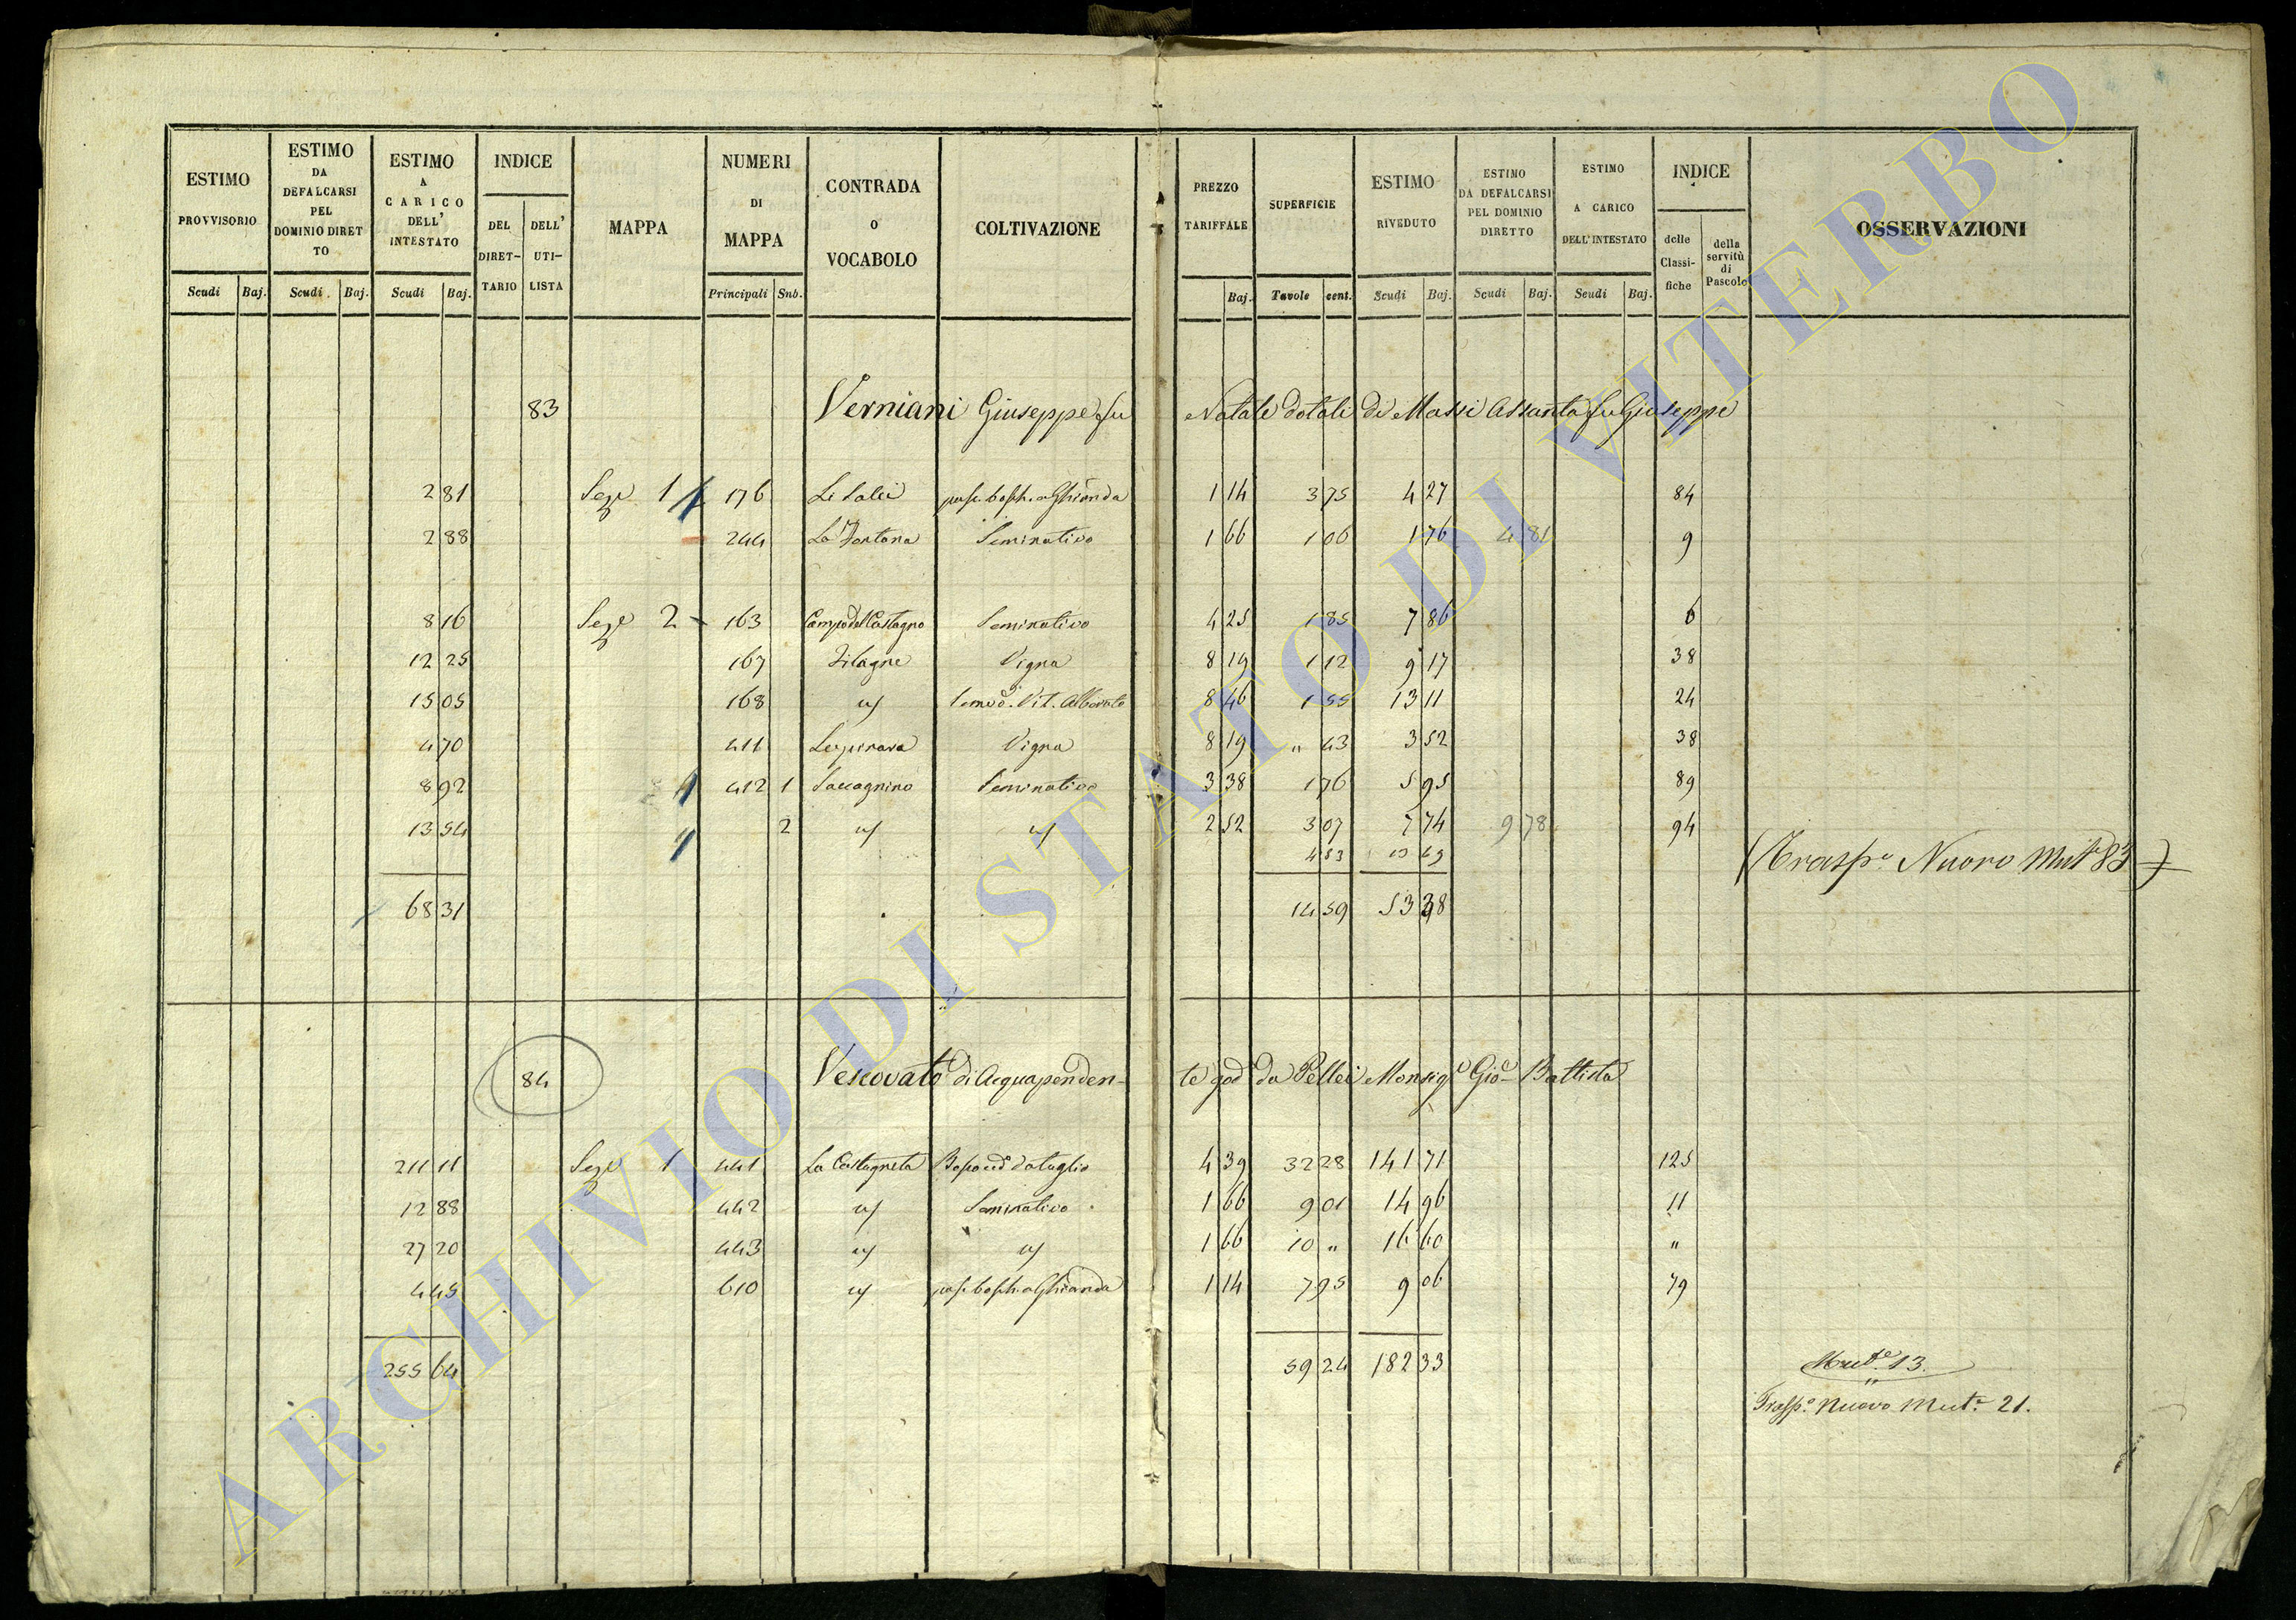 ESTIMO PROVVISORIO Scudi Baj.
ESTIMO DA DEFALCARSI PEL DOMINIO DIRETTO Scudi Baj.
ESTIMO A CARICO DELL' INTESTATO Scudi Baj.
INDICE DEL DIRET-TARIO DELL' UTI-LISTA
MAPPA
NUMERI DI MAPPA Principali Sub.
CONTRADA O VOCABOLO
COLTIVAZIONE
PREZZO TARIFFALE Baj.
SUPERFICIE Tavole cent.
ESTIMO RIVEDUTO Scudi Baj.
ESTIMO DA DEFALCARSI PEL DOMINIO DIRETTO Scudi Baj.
ESTIMO A CARICO DELL'INTESTATO Scudi Baj.
INDICE delle Classi-fiche della servitù di Pascolo
OSSERVAZIONI
83 Verniani Giuseppe fu Natale dotale di Massi Assunta fu Giuseppe
2 81 Seze 1 176 Li Salci pas. bosch. a Ghianda 1 14 3 75 4 27 84
2 88 244 La Fontana Seminativo 1 66 1 06 1 76 4 81 9
8 16 Seze 2 163 Campo del Castagno Seminativo 4 25 1 85 7 86 6
12 25 167 Vigna 8 19 1 12 9 17 38
15 05 168 Vit. Alborato 8 46 1 55 13 11 24
4 70 411 Vigna 8 19 " 43 3 52 38
8 92 412 1 Saccagnino Seminativo 3 38 1 76 5 95 89
13 54 2 2 52 3 07 7 74 9 78 94
4 83 13 69
(Trasp.o Nuovo Mut.e 83)
68 31 14 59 53 38
84 Vescovato di Acquapendente god. da Pellei Monsig.e Gio. Battista
211 11 Seze 1 441 La Castagneta Bosco ced. da taglio 4 39 32 28 141 71 125
12 88 442 Seminativo 1 66 9 01 14 96 11
27 20 443 1 66 10 " 16 60 "
4 45 610 pas. bosch. a Ghianda 1 14 7 95 9 06 79
255 64 59 24 182 33
Mut.e 13.
Trasp.o Nuovo Mut.e 21.
ARCHIVIO DI STATO DI VITERBO